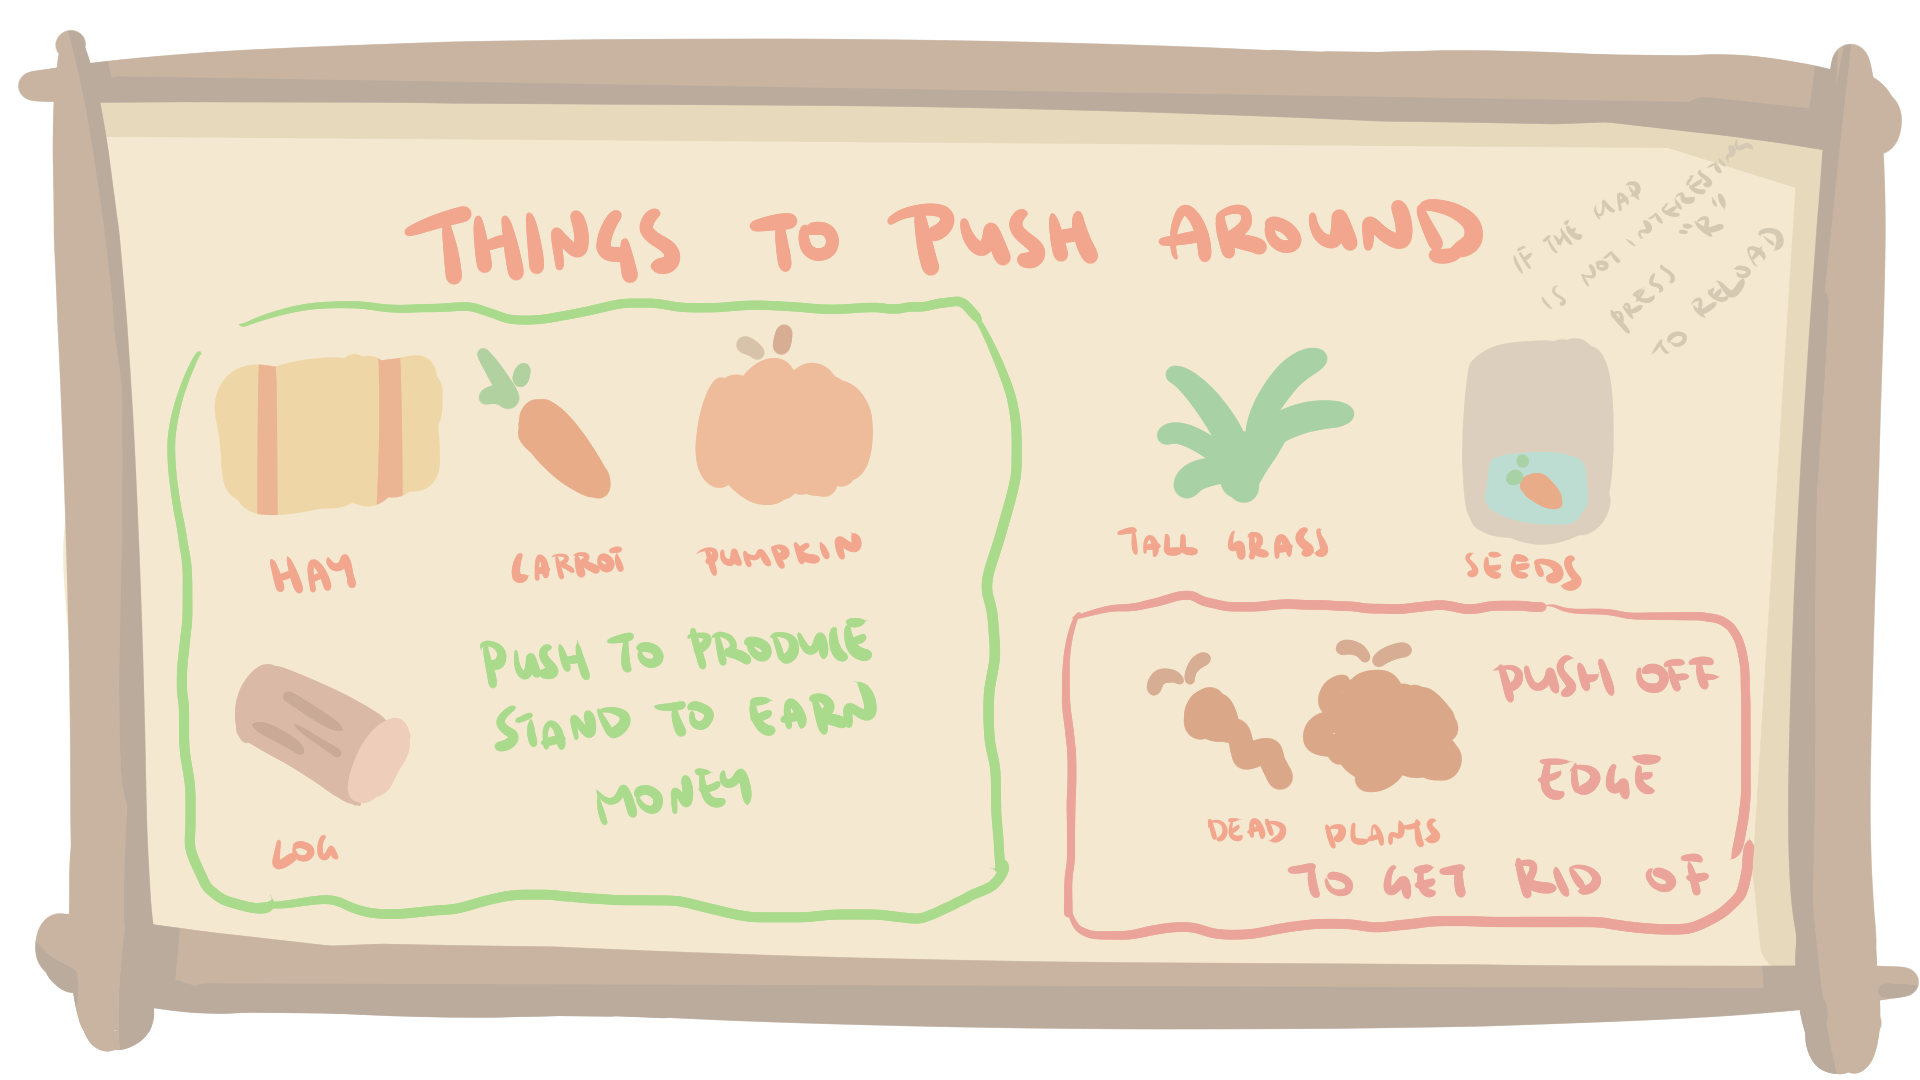 THINGS TO PUSH AROUND
IF THE MAP
IS NOT INTERESTING
PRESS "R"
TO RELOAD
HAY
CARROT
PUMPKIN
LOG
PUSH TO PRODUCE
STAND TO EARN
MONEY
TALL GRASS
SEEDS
DEAD PLANTS
PUSH OFF
EDGE
TO GET RID OF